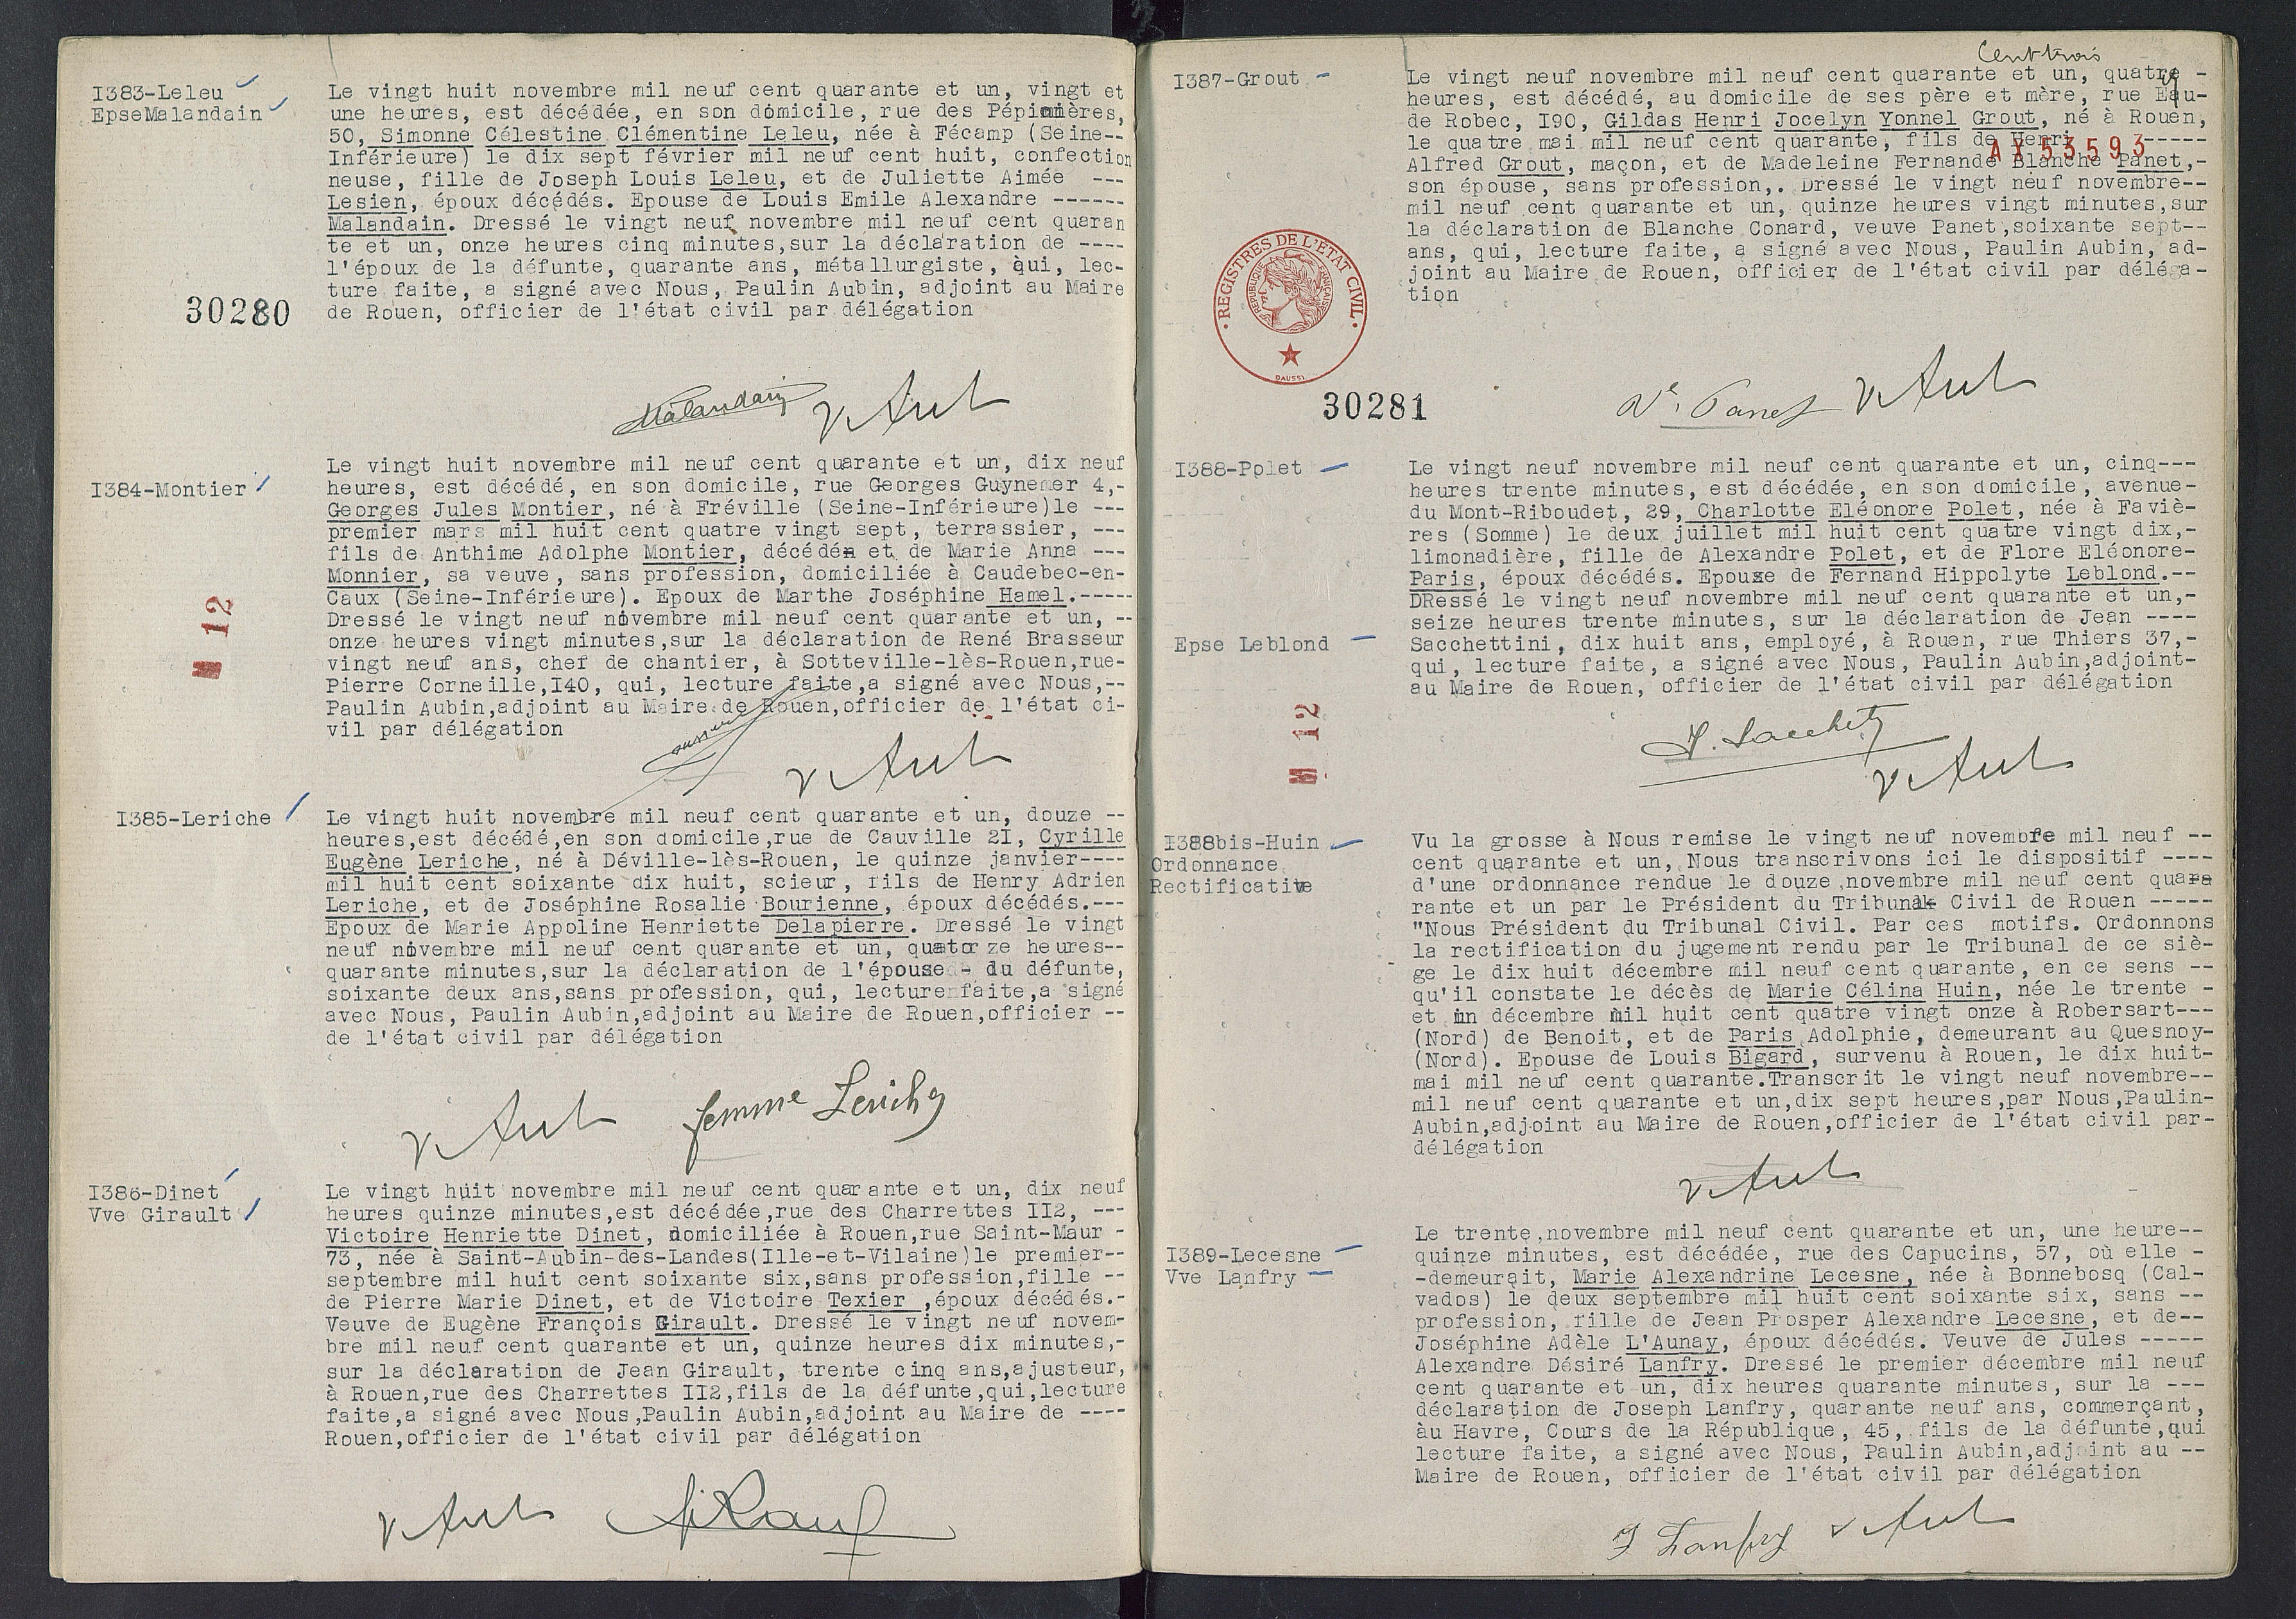 1383-Leleu
EpseMalandain
Le vingt huit novembre mil neuf cent quarante et un, vingt et
une heures, est décédée, en son domicile, rue des Pépinières,
50, Simonne Célestine Clémentine Leleu, née à Fécamp (Seine--
Inférieure) le dix sept février mil neuf cent huit, confection
neuse, fille de Joseph Louis Leleu, et de Juliette Aimée ---
Lesien, époux décédés. Epouse de Louis Emile Alexandre ------
Malandain. Dressé le vingt neuf novembre mil neuf cent quaran
te et un, onze heures cinq minutes,sur la déclaration de ----
l'époux de la défunte, quarante ans, métallurgiste, qui, lec-
ture faite, a signé avec Nous, Paulin Aubin, adjoint au Maire
de Rouen, officier de l'état civil par délégation
30280
Malandain
1384-Montier
Le vingt huit novembre mil neuf cent quarante et un, dix neuf
heures, est décédé, en son domicile, rue Georges Guynemer 4,-
Georges Jules Montier, né à Fréville (Seine-Inférieure)le ---
premier mars mil huit cent quatre vingt sept, terrassier, ---
fils de Anthime Adolphe Montier, décédé et de Marie Anna ---
Monnier, sa veuve, sans profession, domiciliée à Caudebec-en-
Caux (Seine-Inférieure). Epoux de Marthe Joséphine Hamel.-----
Dressé le vingt neuf novembre mil neuf cent quarante et un, --
onze heures vingt minutes,sur la déclaration de René Brasseur
vingt neuf ans, chef de chantier, à Sotteville-lès-Rouen,rue-
Pierre Corneille,I40, qui, lecture faite,a signé avec Nous,--
Paulin Aubin,adjoint au Maire de Rouen,officier de l'état ci-
vil par délégation
M 12
I385-Leriche
Le vingt huit novembre mil neuf cent quarante et un, douze --
heures,est décédé,en son domicile,rue de Cauville 2I, Cyrille
Eugène Leriche, né à Déville-lès-Rouen, le quinze janvier----
mil huit cent soixante dix huit, scieur, fils de Henry Adrien
Leriche, et de Joséphine Rosalie Bourienne, époux décédés.---
Epoux de Marie Appoline Henriette Delapierre. Dressé le vingt
neuf novembre mil neuf cent quarante et un, quatorze heures--
quarante minutes,sur la déclaration de l'épouse - du défunte,
soixante deux ans,sans profession, qui, lecture faite,a signé
avec Nous, Paulin Aubin,adjoint au Maire de Rouen,officier --
de l'état civil par délégation
femme Leriche
I386-Dinet
Vve Girault
Le vingt huit novembre mil neuf cent quarante et un, dix neuf
heures quinze minutes,est décédée,rue des Charrettes II2, ---
Victoire Henriette Dinet, domiciliée à Rouen,rue Saint-Maur -
73, née à Saint-Aubin-des-Landes(Ille-et-Vilaine)le premier--
septembre mil huit cent soixante six,sans profession,fille --
de Pierre Marie Dinet, et de Victoire Texier ,époux décédés.-
Veuve de Eugène François Girault. Dressé le vingt neuf novem-
bre mil neuf cent quarante et un, quinze heures dix minutes,-
sur la déclaration de Jean Girault, trente cinq ans,ajusteur,
à Rouen,rue des Charrettes II2,fils de la défunte,qui,lecture
faite,a signé avec Nous,Paulin Aubin,adjoint au Maire de ----
Rouen,officier de l'état civil par délégation
Girault
Cent trois
I387-Grout
Le vingt neuf novembre mil neuf cent quarante et un, quatre -
heures, est décédé, au domicile de ses père et mère, rue Eau-
de Robec, I90, Gildas Henri Jocelyn Yonnel Grout, né à Rouen,
le quatre mai mil neuf cent quarante, fils de Henri -----
Alfred Grout, maçon, et de Madeleine Fernande Blanche Panet,-
son épouse, sans profession,. Dressé le vingt neuf novembre--
mil neuf cent quarante et un, quinze heures vingt minutes,sur
la déclaration de Blanche Conard, veuve Panet,soixante sept--
ans, qui, lecture faite, a signé avec Nous, Paulin Aubin, ad-
joint au Maire de Rouen, officier de l'état civil par déléga-
tion
53593
REGISTRES DE L'ÉTAT CIVIL
RÉPUBLIQUE FRANÇAISE
30281
Ve Panet
I388-Polet
Epse Leblond
Le vingt neuf novembre mil neuf cent quarante et un, cinq---
heures trente minutes, est décédée, en son domicile, avenue-
du Mont-Riboudet, 29, Charlotte Eléonore Polet, née à Faviè-
res (Somme) le deux juillet mil huit cent quatre vingt dix,-
limonadière, fille de Alexandre Polet, et de Flore Eléonore-
Paris, époux décédés. Epouse de Fernand Hippolyte Leblond.--
DRessé le vingt neuf novembre mil neuf cent quarante et un,-
seize heures trente minutes, sur la déclaration de Jean ----
Sacchettini, dix huit ans, employé, à Rouen, rue Thiers 37,-
qui, lecture faite, a signé avec Nous, Paulin Aubin,adjoint-
au Maire de Rouen, officier de l'état civil par délégation
M 12
I388bis-Huin
Ordonnance
Rectificative
Vu la grosse à Nous remise le vingt neuf novembre mil neuf --
cent quarante et un, Nous transcrivons ici le dispositif ----
d'une ordonnance rendue le douze novembre mil neuf cent qua
rante et un par le Président du Tribunal Civil de Rouen -----
"Nous Président du Tribunal Civil. Par ces motifs. Ordonnons
la rectification du jugement rendu par le Tribunal de ce siè-
ge le dix huit décembre mil neuf cent quarante, en ce sens --
qu'il constate le décès de Marie Célina Huin, née le trente -
et un décembre mil huit cent quatre vingt onze à Robersart---
(Nord) de Benoit, et de Paris Adolphie, demeurant au Quesnoy-
(Nord). Epouse de Louis Bigard, survenu à Rouen, le dix huit-
mai mil neuf cent quarante.Transcrit le vingt neuf novembre--
mil neuf cent quarante et un,dix sept heures,par Nous,Paulin-
Aubin,adjoint au Maire de Rouen,officier de l'état civil par-
délégation
I389-Lecesne
Vve Lanfry
Le trente novembre mil neuf cent quarante et un, une heure--
quinze minutes, est décédée, rue des Capucins, 57, où elle -
-demeurait, Marie Alexandrine Lecesne, née à Bonnebosq (Cal-
vados) le deux septembre mil huit cent soixante six, sans --
profession, fille de Jean Prosper Alexandre Lecesne, et de--
Joséphine Adèle L'Aunay, époux décédés. Veuve de Jules -----
Alexandre Désiré Lanfry. Dressé le premier décembre mil neuf
cent quarante et un, dix heures quarante minutes, sur la ---
déclaration de Joseph Lanfry, quarante neuf ans, commerçant,
àu Havre, Cours de la République, 45, fils de la défunte,qui
lecture faite, a signé avec Nous, Paulin Aubin,adjoint au --
Maire de Rouen, officier de l'état civil par délégation
J Lanfry